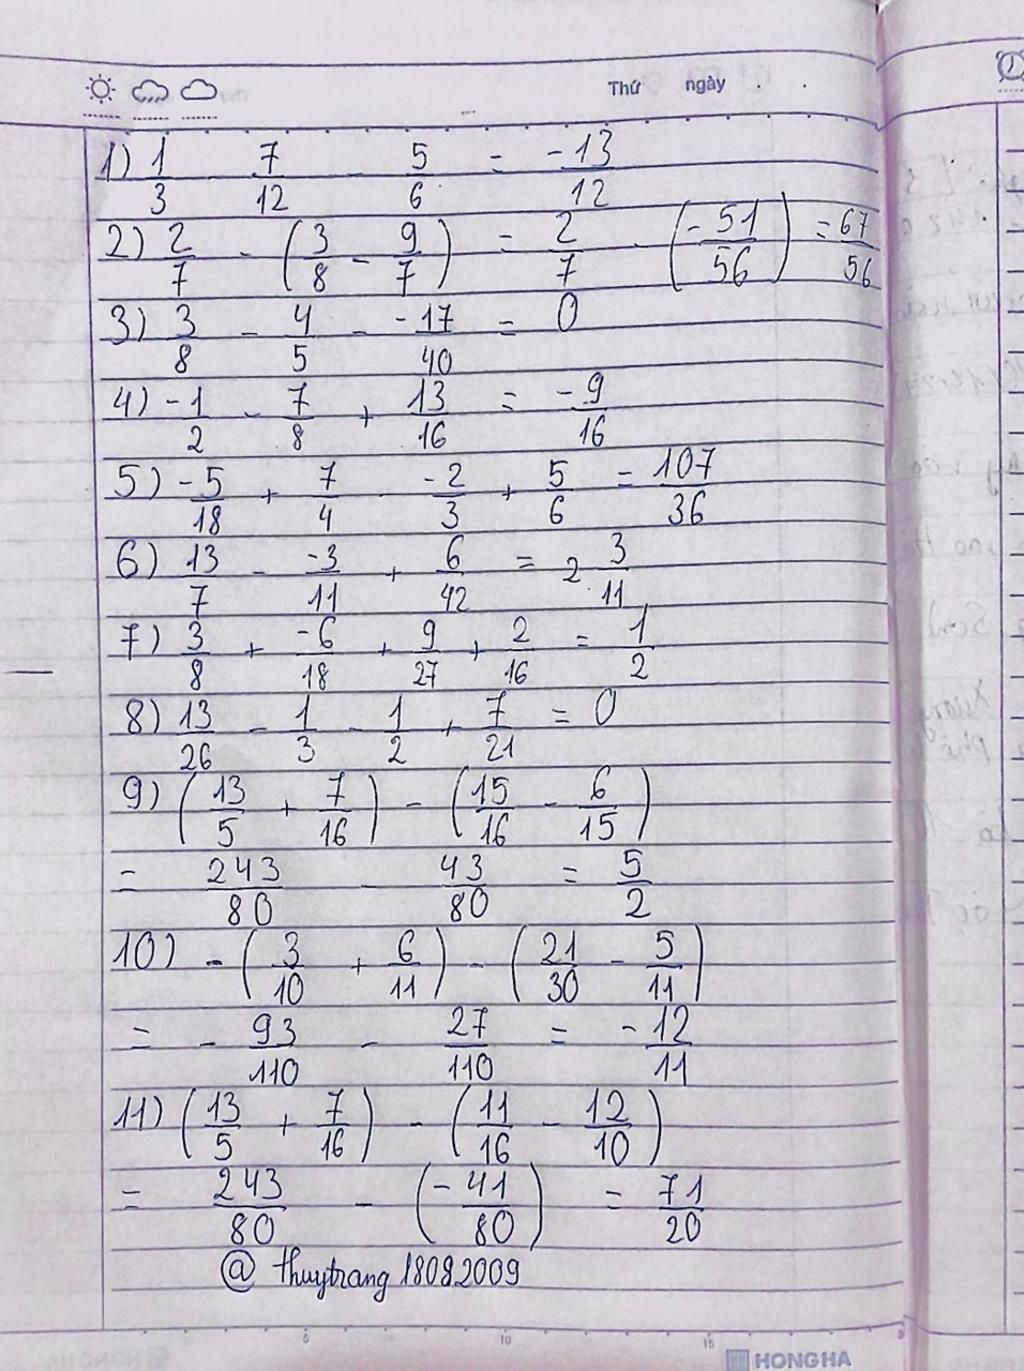 Thứ ngày
1) 1/3 - 7/12 - 5/6 = -13/12
2) 2/7 - (3/8 - 9/7) = 2/7 - (-51/56) = 67/56
3) 3/8 - 4/5 - -17/40 = 0
4) -1/2 - 7/8 + 13/16 = -9/16
5) -5/18 + 7/4 - -2/3 + 5/6 = 107/36
6) 13/7 - -3/11 + 6/42 = 2 3/11
7) 3/8 + -6/18 + 9/27 + 2/16 = 1/2
8) 13/26 - 1/3 - 1/2 + 7/21 = 0
9) (13/5 + 7/16) - (15/16 - 6/15)
= 243/80 - 43/80 = 5/2
10) - (3/10 + 6/11) - (21/30 - 5/11)
= - 93/110 - 27/110 = -12/11
11) (13/5 + 7/16) - (11/16 - 12/10)
= 243/80 - (-41/80) = 71/20
@ thuytrang 18092009
5 10 15
HONG HA